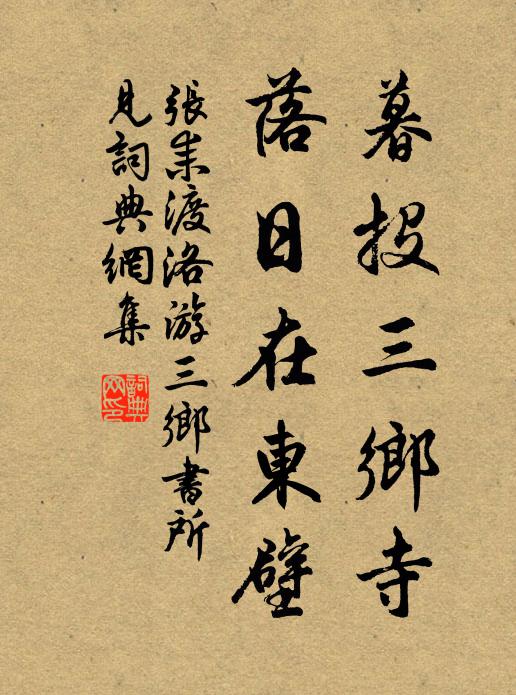 暮投三鄉寺
落日在東壁
張耒渡洛游三鄉書所
見詞典網集
詞典網印